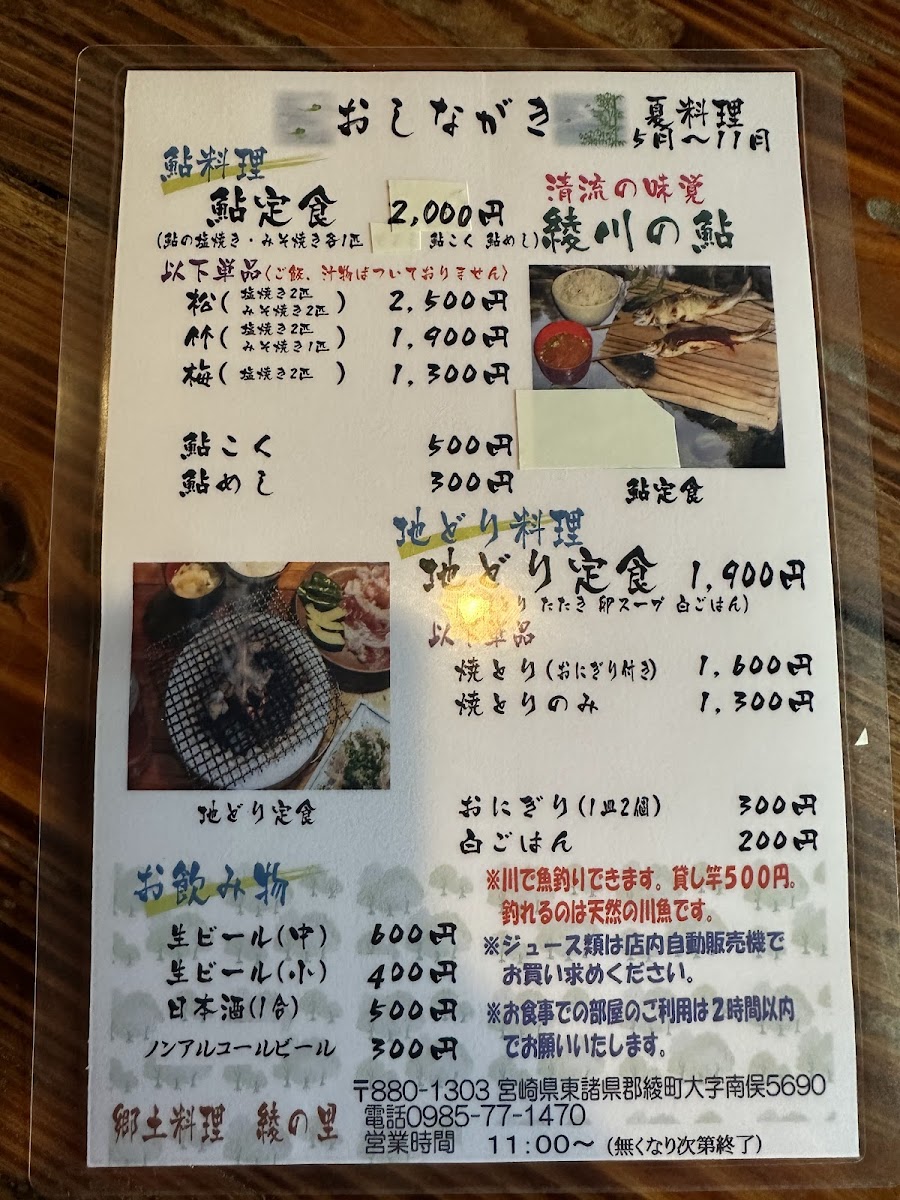 おしながき
夏料理
5月～11月
鮎料理
鮎定食 2,000円
(鮎の塩焼き・みそ焼き各1匹 鮎こく 鮎めし)
清流の味覚
綾川の鮎
以下単品(ご飯、汁物はついておりません)
松(塩焼き2匹 みそ焼き2匹) 2,500円
竹(塩焼き2匹 みそ焼き1匹) 1,900円
梅(塩焼き2匹) 1,300円
鮎こく 500円
鮎めし 300円
鮎定食
地どり料理
地どり定食 1,900円
とり たたき 卵スープ 白ごはん)
以下単品
焼とり(おにぎり付き) 1,600円
焼とりのみ 1,300円
地どり定食
おにぎり(1皿2個) 300円
白ごはん 200円
お飲み物
生ビール(中) 600円
生ビール(小) 400円
日本酒(1合) 500円
ノンアルコールビール 300円
※川で魚釣りできます。貸し竿500円。
釣れるのは天然の川魚です。
※ジュース類は店内自動販売機で
お買い求めください。
※お食事での部屋のご利用は2時間以内
でお願いいたします。
郷土料理 綾の里
〒880-1303 宮崎県東諸県郡綾町大字南俣5690
電話0985-77-1470
営業時間 11:00～(無くなり次第終了)